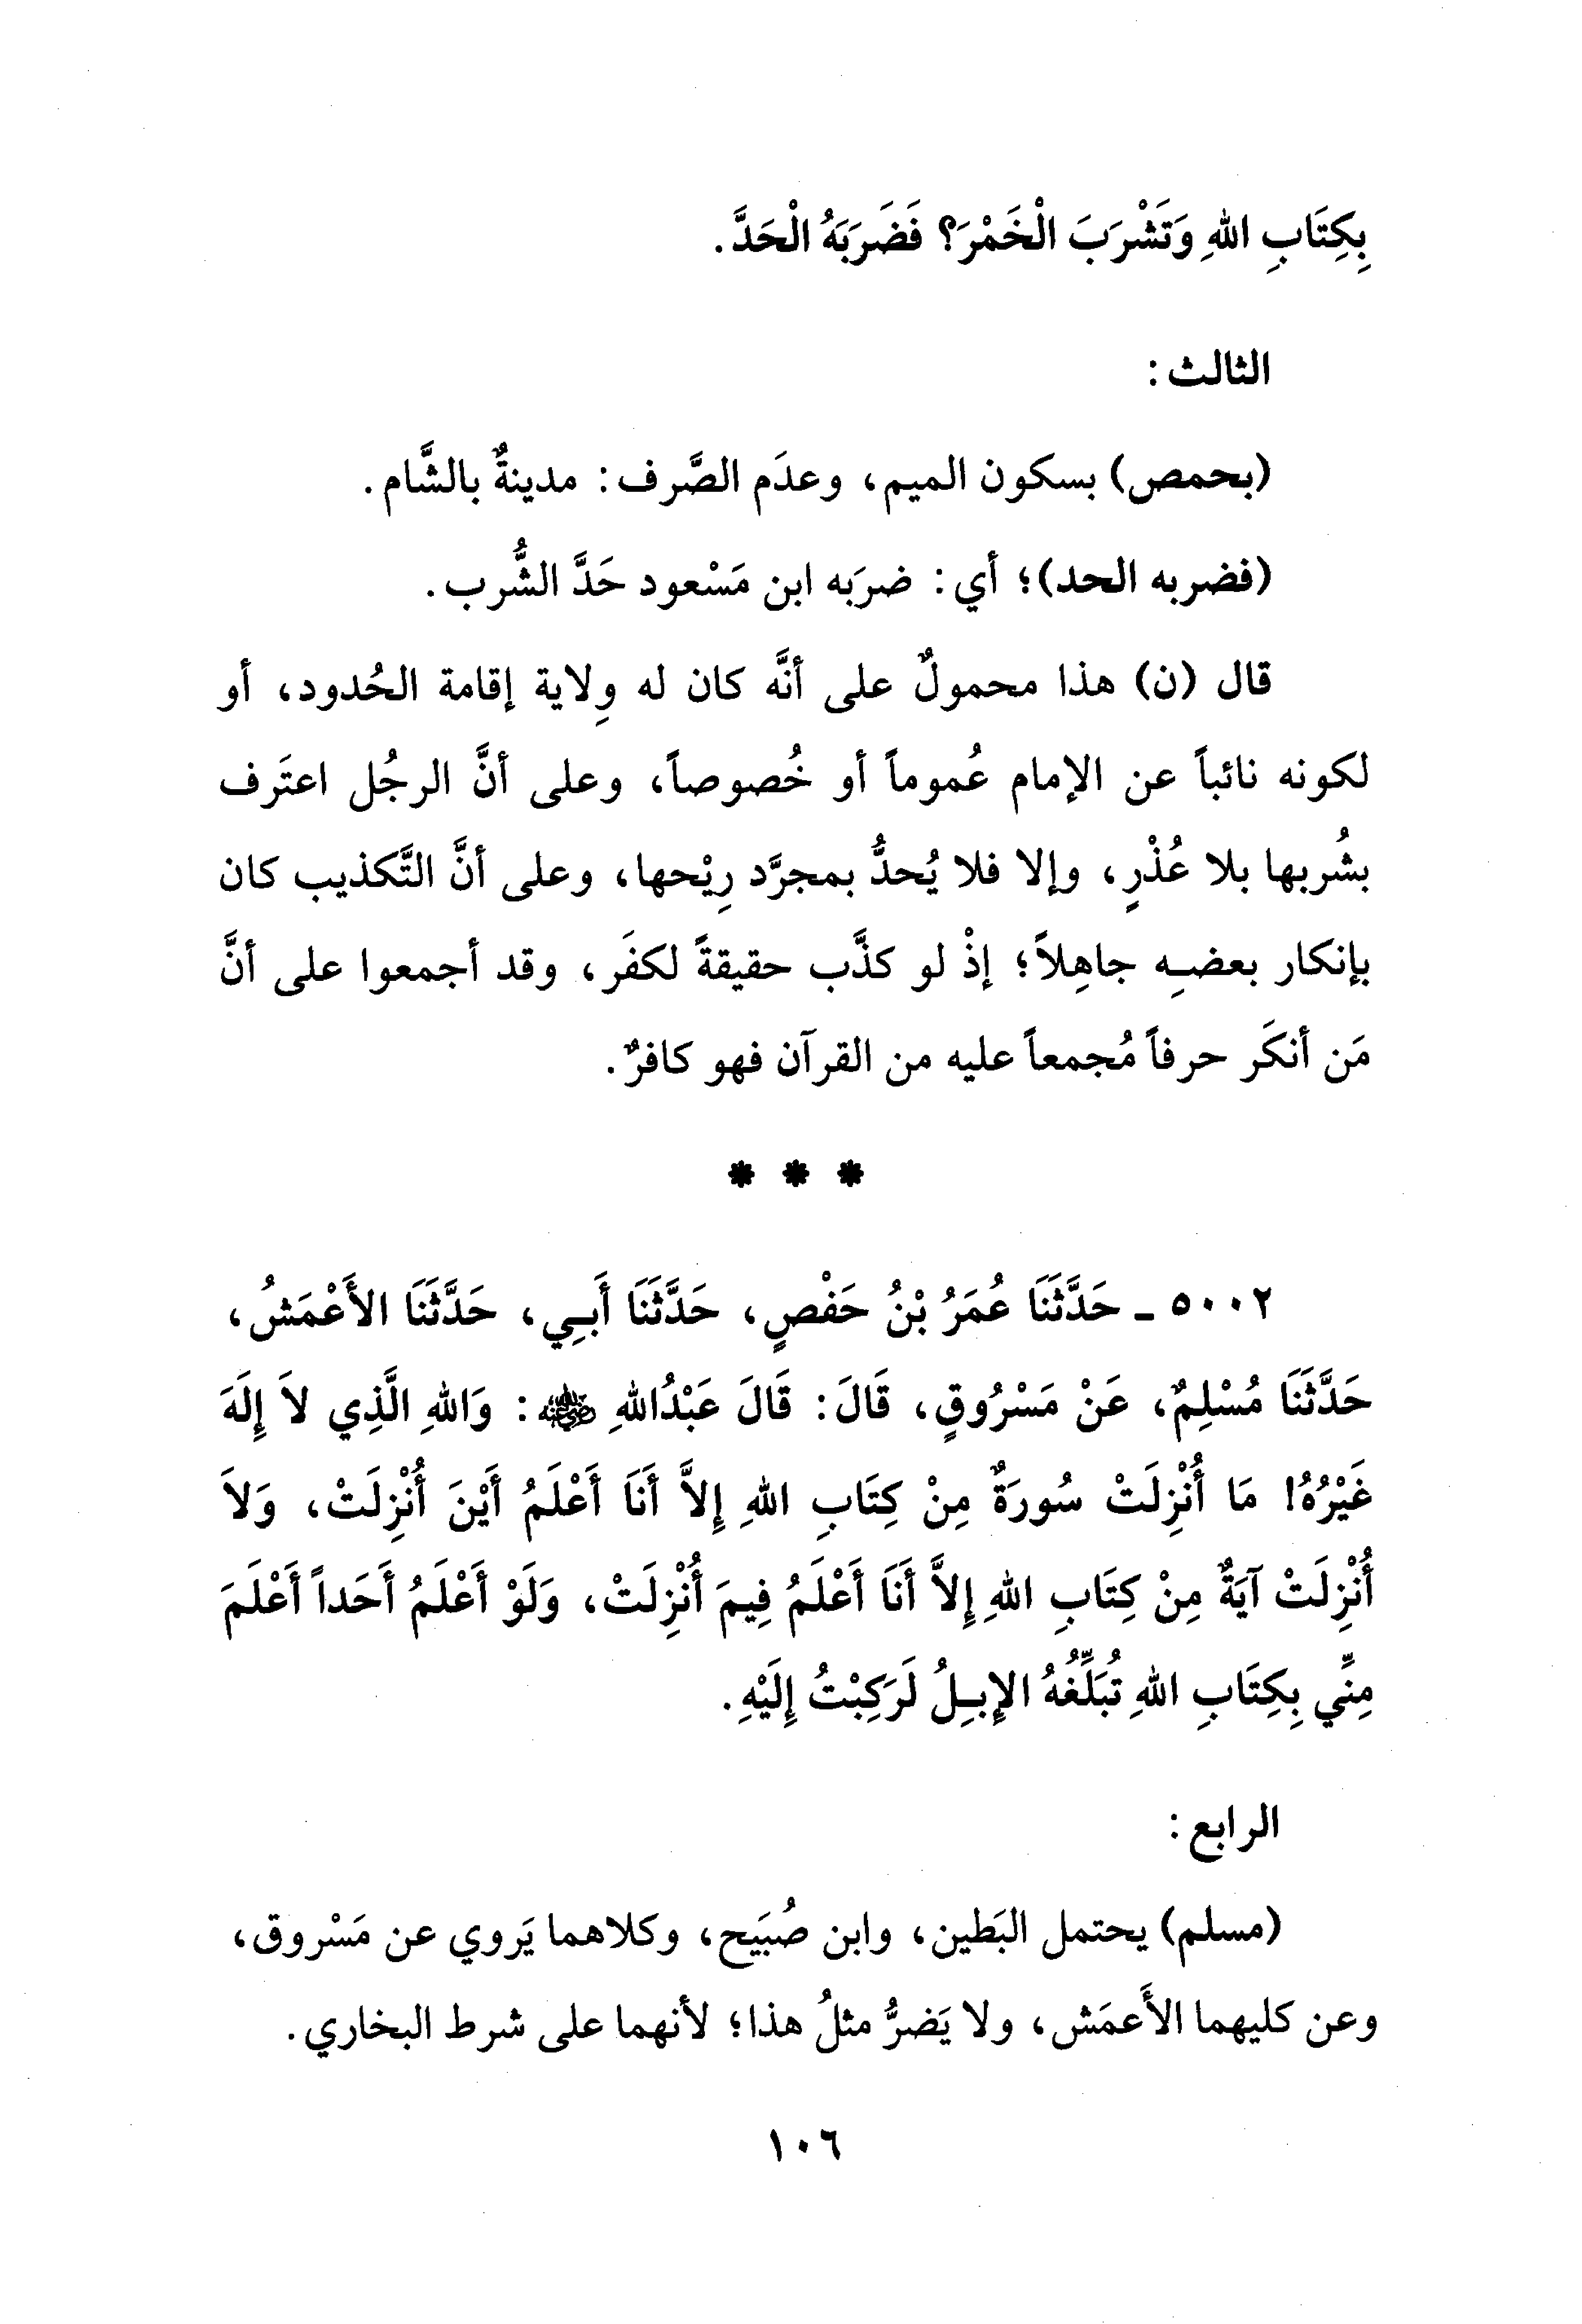 بِكِتَابِ اللهِ وَتَشْرَبَ الْخَمْرَ؟ فَضَرَبَهُ الْحَدَّ.
الثالث:
(بحمص) بسكون الميم، وعدَم الصَّرف: مدينةٌ بالشَّام.
(فضربه الحد)؛ أي: ضرَبه ابن مَسْعود حَدَّ الشُّرب.
قال (ن) هذا محمولٌ على أنَّه كان له وِلاية إقامة الحُدود، أو
لكونه نائباً عن الإمام عُموماً أو خُصوصاً، وعلى أنَّ الرجُل اعتَرف
بشُربها بلا عُذْرٍ، وإلا فلا يُحدُّ بمجرَّد رِيْحها، وعلى أنَّ التَّكذيب كان
بإنكار بعضِه جاهِلاً؛ إذْ لو كذَّب حقيقةً لكفَر، وقد أجمعوا على أنَّ
مَن أنكَر حرفاً مُجمعاً عليه من القرآن فهو كافرٌ.
* * *
٥٠٠٢ - حَدَّثَنَا عُمَرُ بْنُ حَفْصٍ، حَدَّثَنَا أَبِي، حَدَّثَنَا الأَعْمَشُ،
حَدَّثَنَا مُسْلِمٌ، عَنْ مَسْرُوقٍ، قَالَ: قَالَ عَبْدُاللهِ رضي الله عنه: وَاللهِ الَّذِي لاَ إِلَهَ
غَيْرُهُ! مَا أُنْزِلَتْ سُورَةٌ مِنْ كِتَابِ اللهِ إِلاَّ أَنَا أَعْلَمُ أَيْنَ أُنْزِلَتْ، وَلاَ
أُنْزِلَتْ آيَةٌ مِنْ كِتَابِ اللهِ إِلاَّ أَنَا أَعْلَمُ فِيمَ أُنْزِلَتْ، وَلَوْ أَعْلَمُ أَحَداً أَعْلَمَ
مِنِّي بِكِتَابِ اللهِ تُبَلِّغُهُ الإِبِلُ لَرَكِبْتُ إِلَيْهِ.
الرابع:
(مسلم) يحتمل البَطين، وابن صُبَيح، وكلاهما يَروي عن مَسْروق،
وعن كليهما الأَعمَش، ولا يَضرُّ مثلُ هذا؛ لأنهما على شرط البخاري.
١٠٦